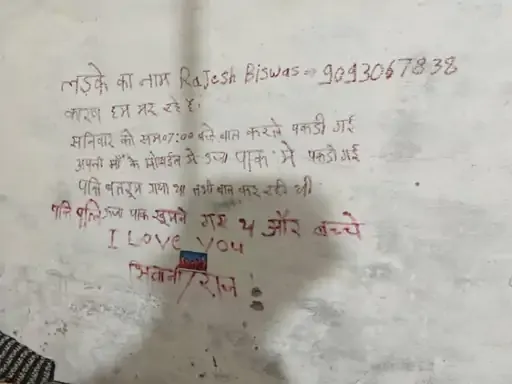 लड़के का नाम Rajesh Biswas => 9093067838
कारण हम मर रहे है।
सनिवार को साम 07:00 बजे बात करते पकडी गई
अपनी माँ के मोबाईल से उज्य पाक में पकडी गई
पति बातरूम गया था तभी बात कर रही थी
पति पत्नि उज्य पाक घूमने गए थे और बच्चे
I Love you
शिवानी/राज